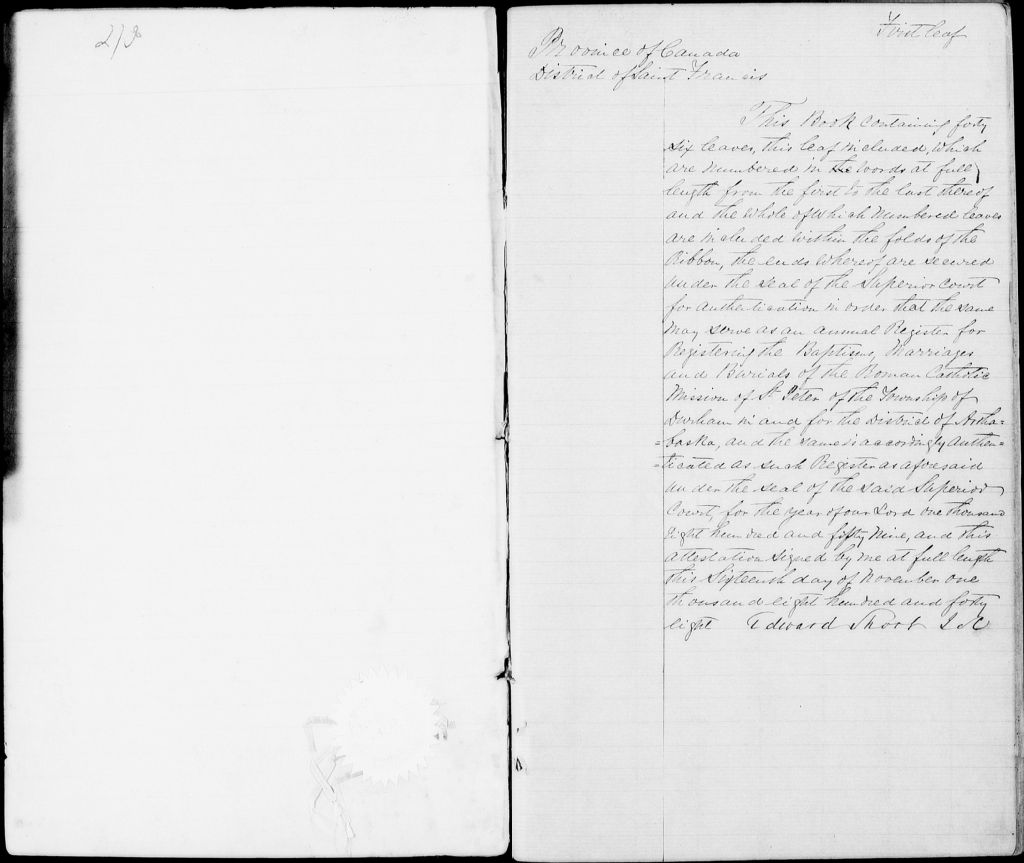 2/8
First leaf
Province of Canada
District of Saint Francis
This Book containing forty
six leaves, this leaf included, which
are numbered in the words at full
length from the first to the last thereof
and the whole of which numbered leaves
are included within the folds of the
Ribbon, the ends whereof are secured
under the seal of the Superior Court
for authentication in order that the same
may serve as an annual Register for
Registering the Baptisms, Marriages
and Burials of the Roman Catholic
Mission of St Peter of the Township of
Durham in and for the District of Artha-
=baska, and the same is accordingly authen=
=ticated as such Register as aforesaid
under the seal of the said Superior
Court, for the year of our Lord one thousand
eight hundred and fifty nine, and this
attestation signed by me at full length
this Sixteenth day of November one
thousand eight hundred and forty
eight Edward Short